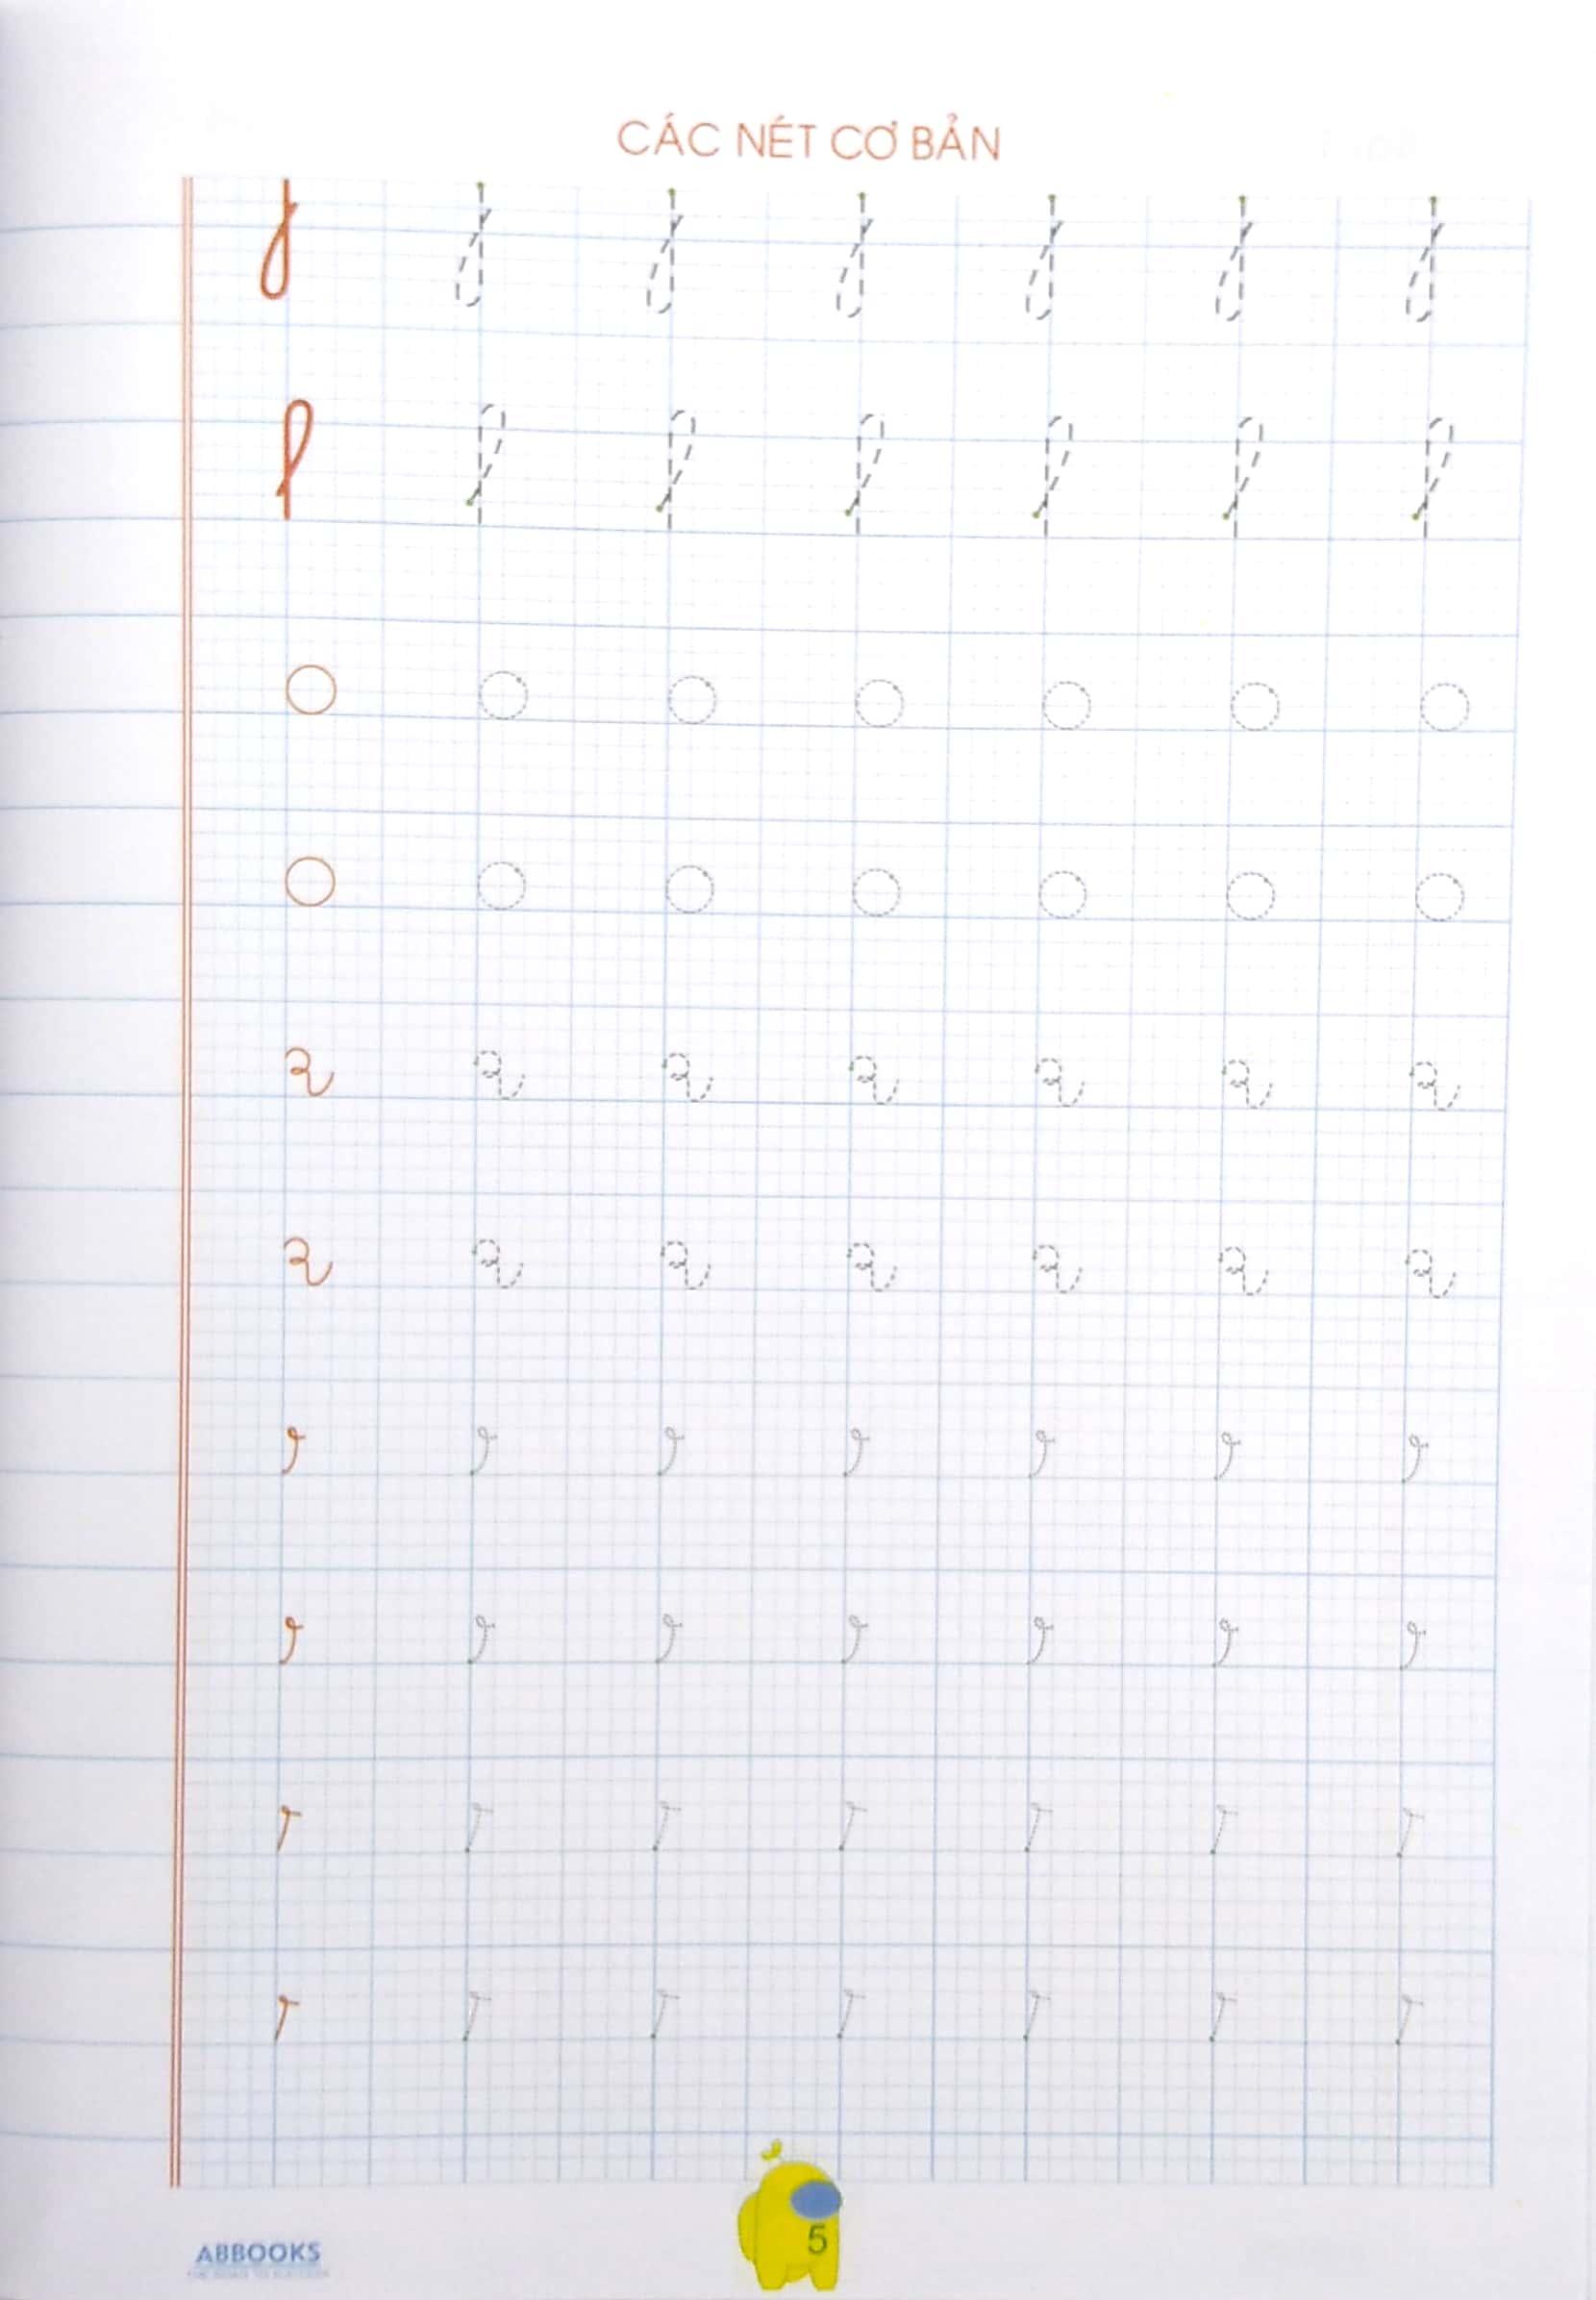 CÁC NÉT CƠ BẢN
5
ABBOOKS